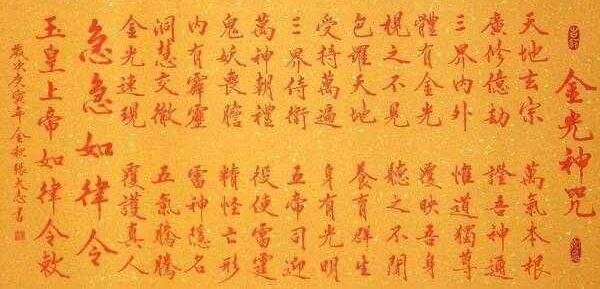 金光神咒
天地玄宗 萬氣本根
廣修億劫 證吾神通
三界內外 惟道獨尊
體有金光 覆映吾身
視之不見 聽之不聞
包羅天地 養育群生
受持萬遍 身有光明
三界侍衛 五帝司迎
萬神朝禮 役使雷霆
鬼妖喪膽 精怪亡形
內有霹靂 雷神隱名
洞慧交徹 五氣騰騰
金光速現 覆護真人
急急如律令
玉皇上帝如律令敕
歲次庚寅年金秋張大書